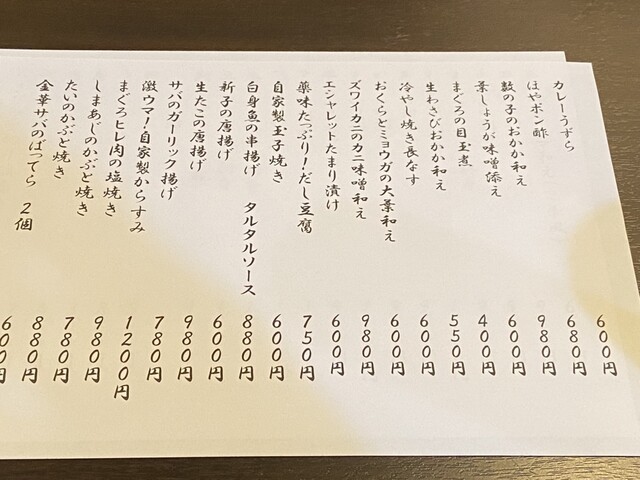 カレーうずら 600円
ほやポン酢 680円
数の子のおかか和え 980円
葉しょうが味噌添え 600円
まぐろの目玉煮 400円
生わさびおかか和え 550円
冷やし焼き長なす 600円
おくらとミョウガの大葉和え 600円
ズワイカニのカニ味噌和え 980円
エシャレットたまり漬け 600円
薬味たっぷり!だし豆腐 750円
自家製玉子焼き 600円
白身魚の串揚げ タルタルソース 880円
新子の唐揚げ 600円
生たこの唐揚げ 980円
サバのガーリック揚げ 780円
激ウマ!自家製からすみ 1200円
まぐろヒレ肉の塩焼き 980円
しまあじのかぶと焼き 780円
たいのかぶと焼き 880円
金華サバのばってら 2個 600円